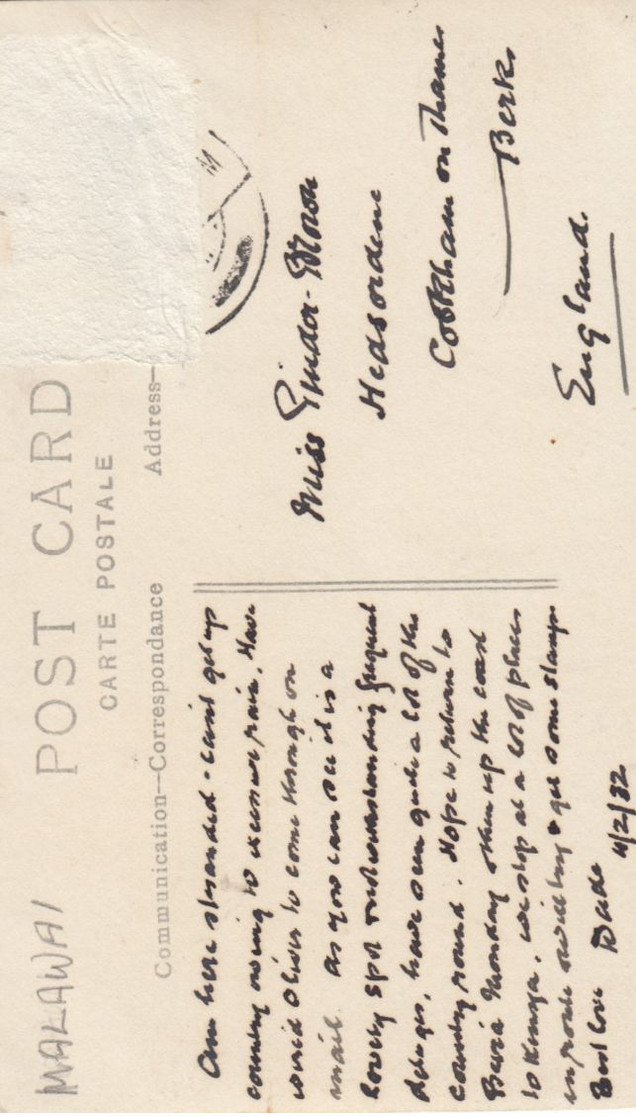 MALAWAI
POST CARD
CARTE POSTALE
Communication—Correspondance
Address—
Am here stranded - can't get up
country owing to excessive rain. Have
wired Oliver to come through on
mail. As you can see it is a
lovely spot notwithstanding frequent
deluges, have seen quite a lot of the
country round. Hope to return to
Beira Monday then up the coast
to Kenya, we stop at a lot of places
en route & will try & get some stamps
Best love
4/2/32
Miss
Hedsordene
Cookham on Thames
Berks
England.